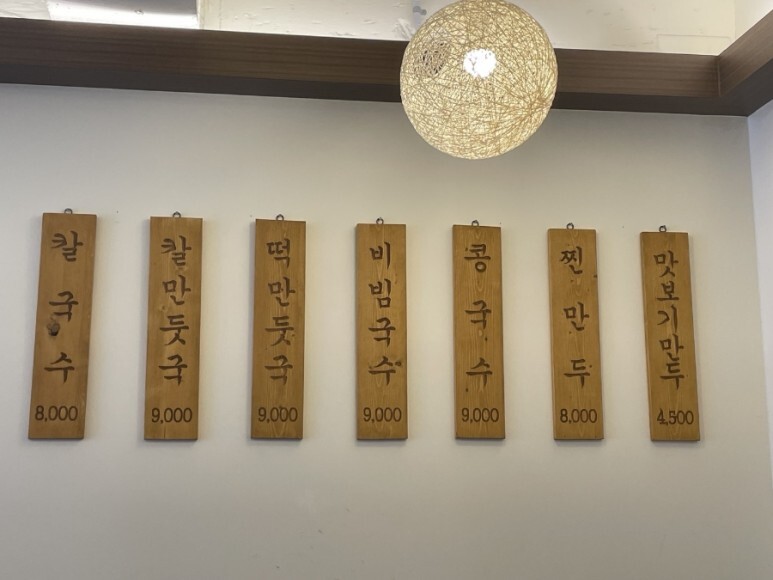 칼국수
8,000
칼만둣국
9,000
떡만둣국
9,000
비빔국수
9,000
콩국수
9,000
찐만두
8,000
맛보기만두
4,500